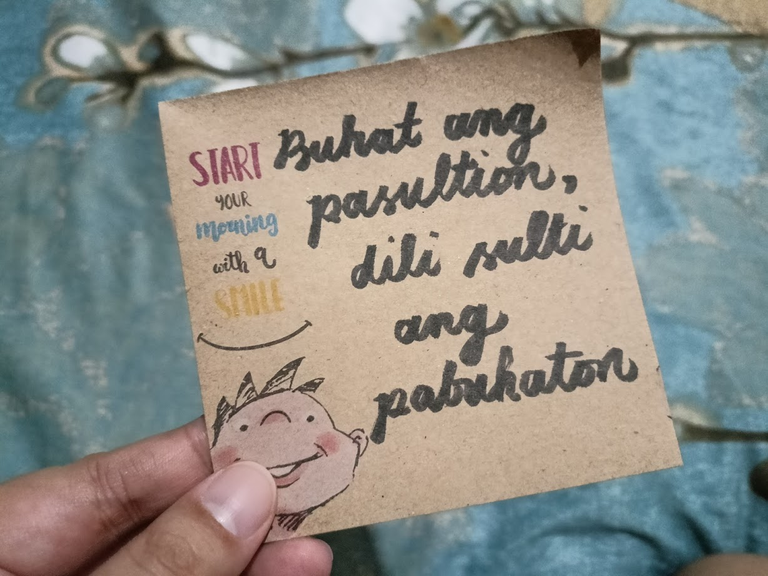 START
YOUR
morning
with a
SMILE
Buhat ang
pasultion,
dili sulti
ang
pabuhaton